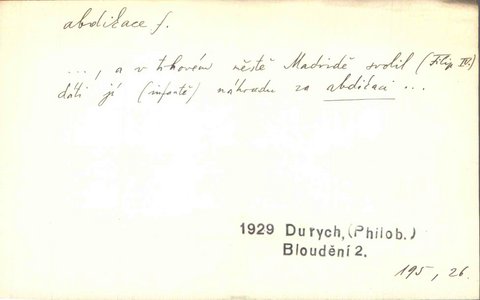 abdikace f.
..., a v takovém městě Madridě svolil (Filip IV.)
dáti jí (infantě) náhradu za abdikaci ...
1929 Durych, (Philob.)
Bloudění 2.
195, 26.